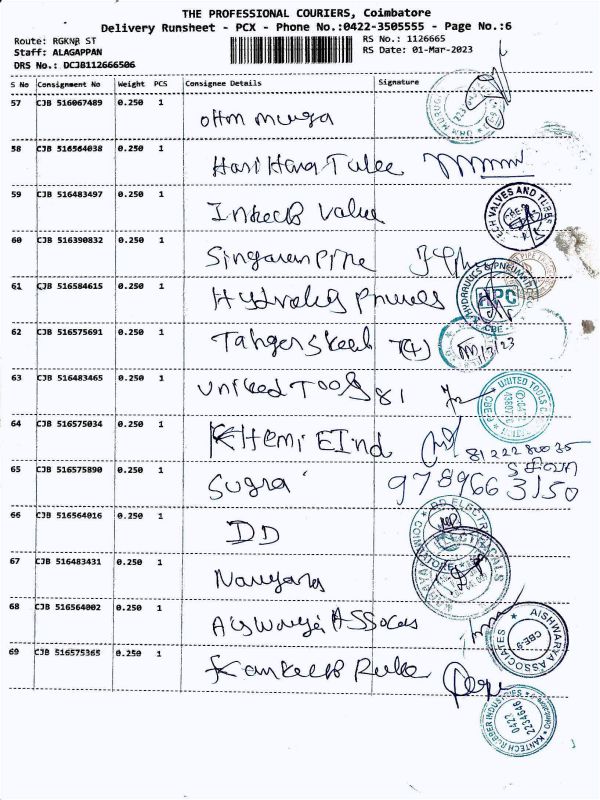 THE PROFESSIONAL COURIERS, Coimbatore
Delivery Runsheet - PCX - Phone No.:0422-3505555 - Page No.:6
Route: RGKNR ST
RS No.: 1126665
Staff: ALAGAPPAN
RS Date: 01-Mar-2023
DRS No.: DCJB112666506
S No Consignment No Weight PCS Consignee Details Signature
57 CJB 516067489 0.250 1 ohm muruga
58 CJB 516564038 0.250 1 Hari Hara Tube
59 CJB 516483497 0.250 1 Intech Value
TECH VALVES AND TUBES
CBE
60 CJB 516390832 0.250 1 Singaram Pipe
61 CJB 516584615 0.250 1 Hydraulics Pneumes
HYDRAULICS & PNEUMATICS
HPC
CBE
62 CJB 516575691 0.250 1 Tahgersteel T(4) 1/3/23
63 CJB 516483465 0.250 1 United Tools 81
UNITED TOOLS
64 CJB 516575034 0.250 1 KHemi EInd
8122280035
65 CJB 516575890 0.250 1 Sugra 9789663150
66 CJB 516564016 0.250 1 DD
DD ELECTRICALS
67 CJB 516483431 0.250 1 Narayana
68 CJB 516564002 0.250 1 Aishwarya Assocas
AISHWARYA ASSOCIATES
CBE-9
69 CJB 516575365 0.250 1 Kantech Rube
KANTECH RUBBER INDUSTRIES
0422
2234646